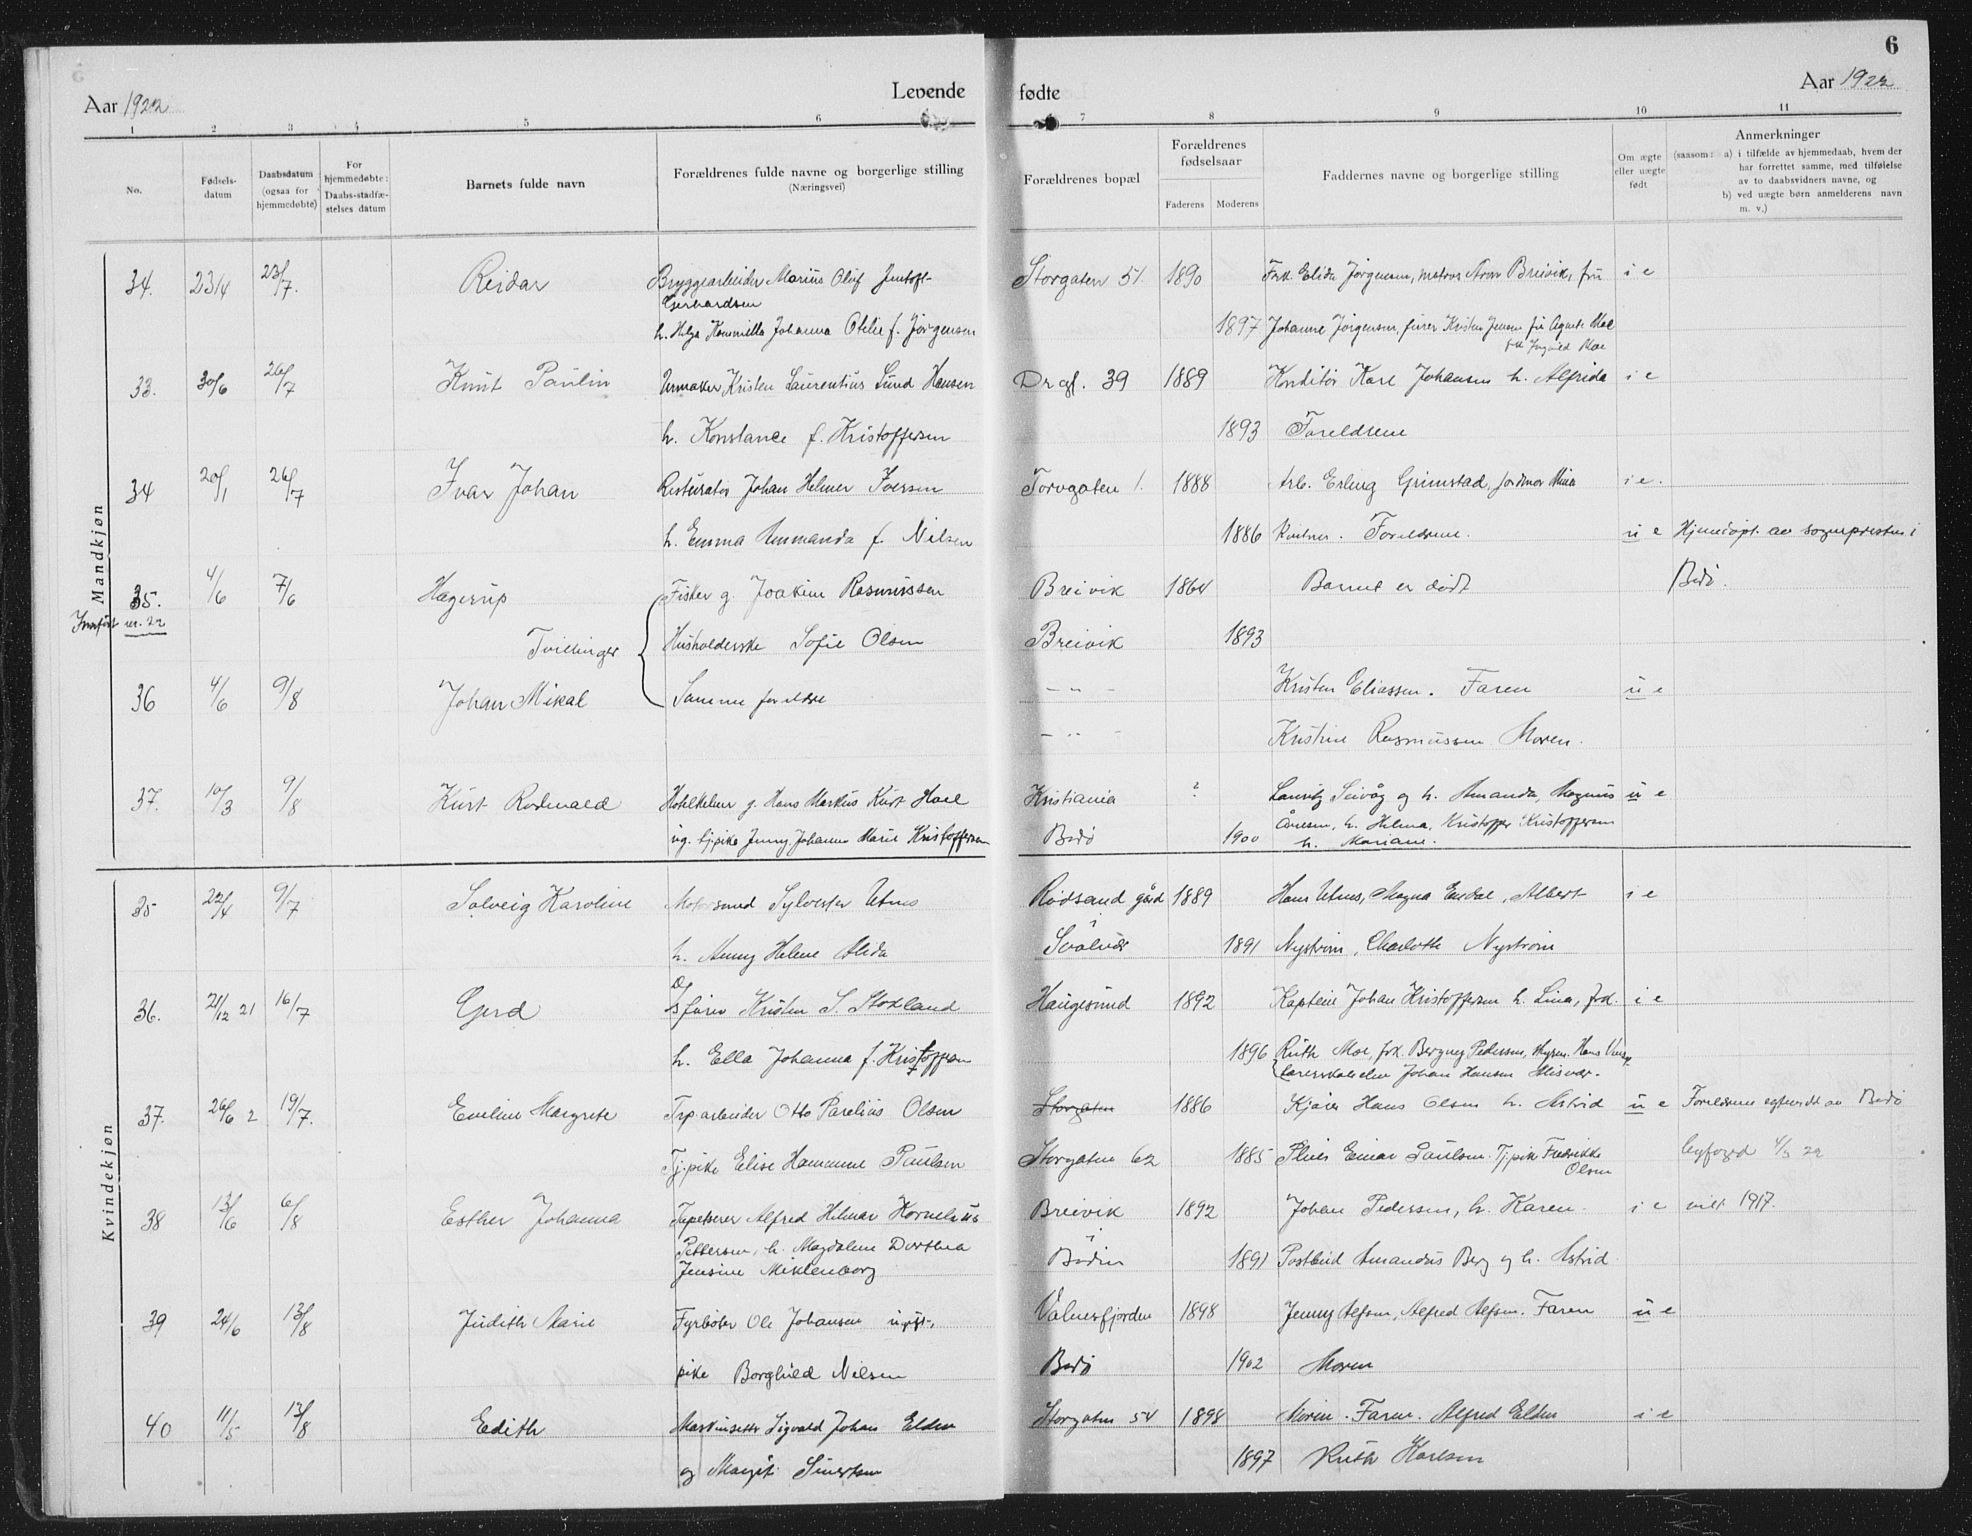 6
Aar 1922
Levende
fødte
Aar 1922
1 2 3 4 5 6 7 8 9 10 11
No.
Fødsels-
datum
Daabsdatum
(ogsaa for
hjemmedøbte)
For
hjemmedøbte:
Daabs-stadfæ-
stelses datum
Barnets fulde navn
Forældrenes fulde navne og borgerlige stilling
(Næringsvei)
Forældrenes bopæl
Forældrenes
fødselsaar
Faderens Moderens
Faddernes navne og borgerlige stilling
Om ægte
eller uægte
født
Anmerkninger
(saasom: a) i tilfælde av hjemmedaab, hvem der
har forrettet samme, med tilføielse
av to daabsvidners navne, og
b) ved uægte børn anmelderens navn
m. v.)
Mandkjøn
34. 23/4 23/7. Reidar Bryggearbeider Marius Olaf Jentoft Storgaten 51. 1890 Frk. Elida Jørgensen, matros Arne Breivik, fru i e
Gerhardsen
h. Helga Kammilla Johanna Otelie f. Jørgensen 1897 Johanne Jørgensen, fører Kristen Jensen fru Agnete Moe
frk Ingvild Moe
33. 30/6 26/7 Knut Paulin Urmaker Kristen Laurentius Lund Hansen Drgt. 39 1889 Konditor Karl Johansen h. Alfrida i e
h. Konstance f. Kristoffersen 1893 Foreldrene
34 20/1 26/7 Ivar Johan Resturatør Johan Helmer Iversen Torvgaten 1. 1888 Arb. Erling Grimstad, jordmor Mina i e.
h. Emma Ammanda f. Nilsen 1886 Foreldrene. u e Hjemdøpt av sognepresten i
35. 4/6 7/6 Hagerup Fisker g. Joakim Rasmussen Breivik 1864 Barnet er dødt Bodø.
Innført nr. 22
Tvillinger Husholderske Sofie Olsen Breivik 1893
36 4/6 9/8 Johan Mikal Samme foreldre - " - Kristen Eliassen. Faren u e
- " - Kristine Rasmussen Moren.
37. 10/3 9/8 Kurt Rodwald Hotelkelner g. Hans Markus Kurt Hoel Kristiania ? Lauritz Seivåg og h. Amanda, Magnus u e
ug. tj.pike Jenny Johanne Marie Kristoffersen Bodø 1900 h. Helma, Kristoffer Kristoffersen
h. Mariane.
Kvindekjøn
35 22/4 9/7 Solveig Karoline Sylvester Utnes Rødsand gård 1889 Hans Utnes, Magna Endal, Albert i e
i
h. Anny Helene Alida Svolvær 1891 Nystrøm, Charlotte Nystrøm
36. 21/12 21 16/7 Gerd D/s fører Kristen S. Stokland Haugesund 1892 Kaptein Johan Kristoffersen h. Lina, frk. i e
h. Ella Johanna f. Kristoffersen 1896 Ruth Moe, frk. Bergny Pedersen, Hans
Johan Hansen Misvær.
37. 26/6 2 19/7. Eveline Margrete Trp.arbeider Otto Parelius Olsen Storgaten 1886 Kjører Hans Olsen h. Astrid u e Foreldrene egteviet av Bodø
Tj.pike Elise Hammine Paulsen Storgaten 62 1885 Einar Paulsen. Tj.pike Fredrikke byfoged 4/3 22
Olsen
38 13/6 6/8 Esther Johanna Tapetserer Alfred Hilmar Kornelius Breivik 1892 Johan Pedersen, h. Karen. i e viet 1917.
i
Pettersen, h. Magdalene Dorthea Bodin 1891 Postbud Amandus Berg og h. Astrid.
Jensine Meklenborg
39 24/6 13/8 Judith Marie Fyrbøter Ole Johansen ugift, Valnesfjorden 1898 Jenny Alfsen, Alfred Alfsen. Faren u e
pike Borghild Nilsen Bodø 1902 Moren
40 11/5 13/8 Edith Maskinsetter Sigvald Johan Elden Storgaten 54 1898 Moren. Faren. Alfred Elden i e
og Margit Sivertsen 1897 Ruth Karlsen